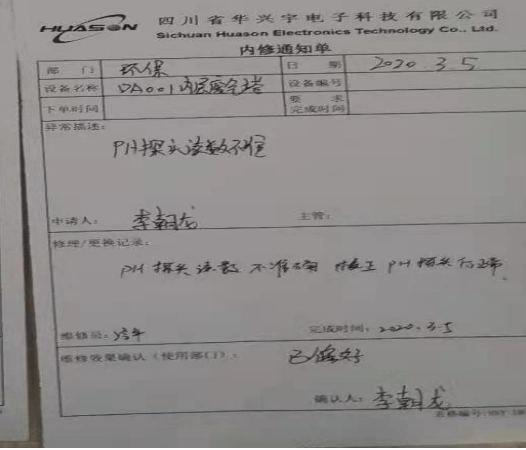 HUASON 四川省华兴宇电子科技有限公司
Sichuan Huason Electronics Technology Co., Ltd.
内修通知单
部 门 环保 日 期 2020.3.5
设备名称 DA001内层废气塔 设备编号
下单时间 要 求 完成时间
异常描述:
PH探头读数不准
申请人: 李朝龙 主管:
修理/更换记录:
PH 探头读数不准确 校正PH探头后正常
维修员: 完成时间: 2020.3.5
维修效果确认(使用部门): 已修好
确认人: 李朝龙
表格编号: